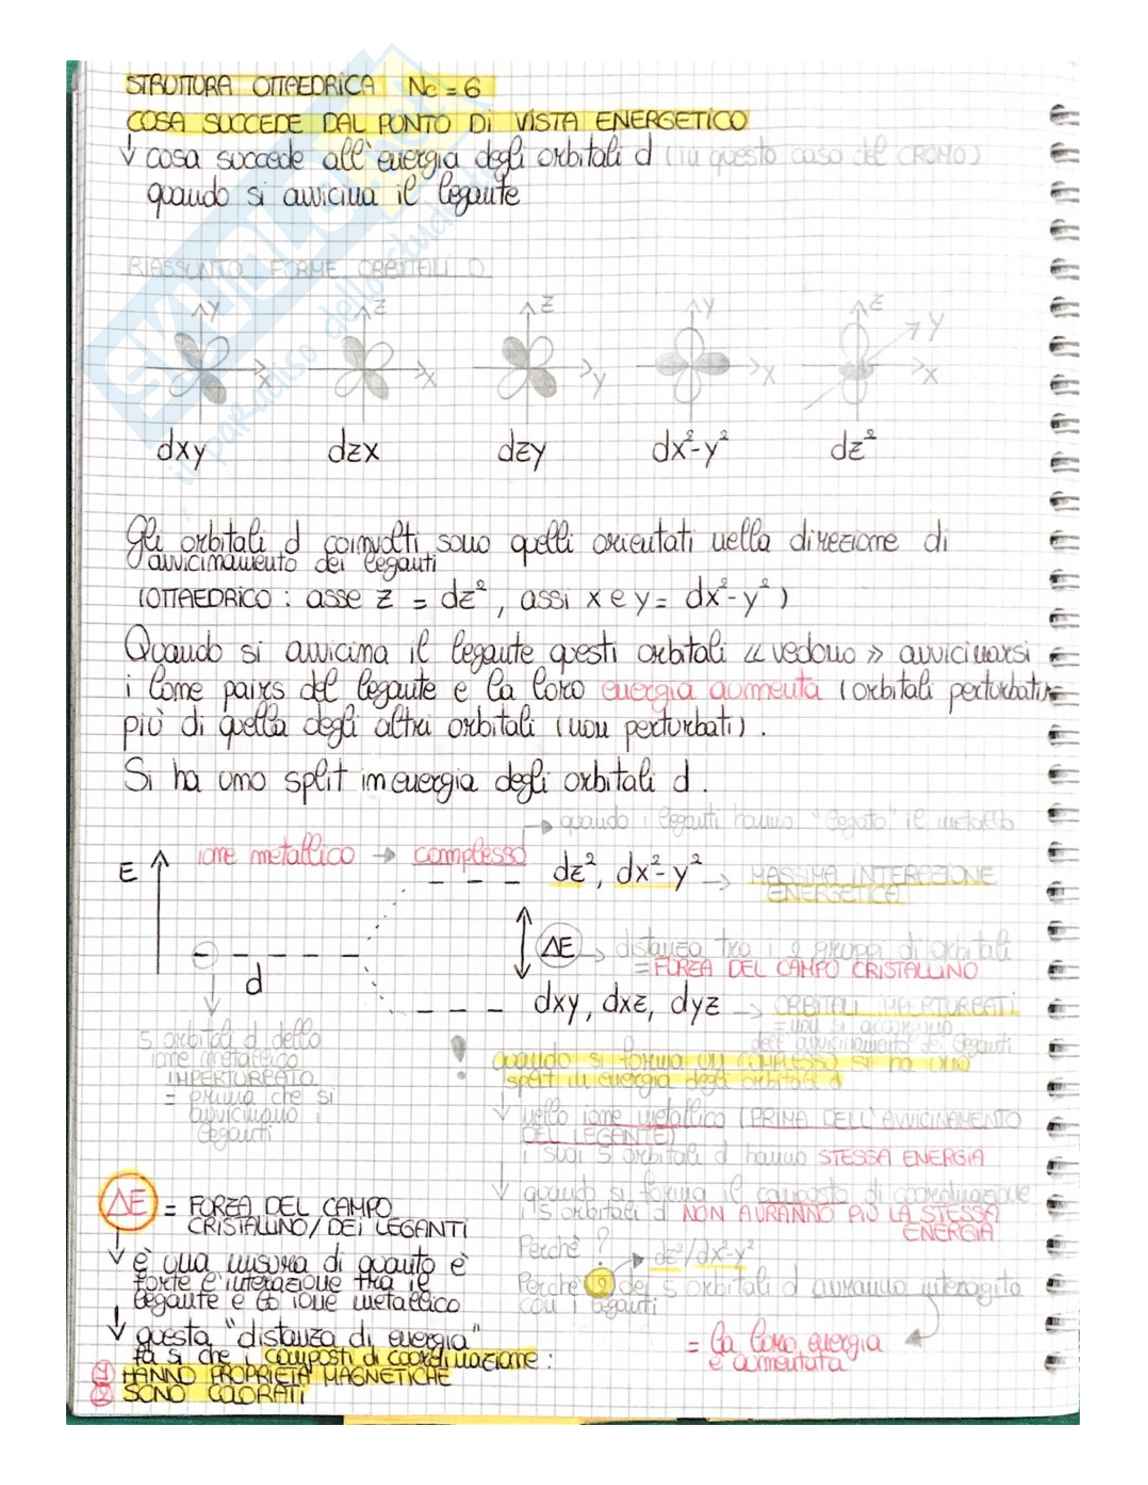 STRUTTURA OTTAEDRICA Nc = 6
COSA SUCCEDE DAL PUNTO DI VISTA ENERGETICO
cosa succede all'energia degli orbitali d (in questo caso del CROMO)
quando si avvicina il legante
RIASSUNTO FORME ORBITALI D
Y Z Z Y Z Y
X X Y X X
dxy dzx dzy dx²-y² dz²
Gli orbitali d coinvolti sono quelli orientati nella direzione di
avvicinamento dei leganti
(OTTAEDRICO : asse z = dz², assi x e y = dx²-y²)
Quando si avvicina il legante questi orbitali « vedono » avvicinarsi
i lone pairs del legante e la loro energia aumenta (orbitali perturbati)
più di quella degli altri orbitali (non perturbati).
Si ha uno split in energia degli orbitali d.
quando i leganti hanno "legato" il metallo
E ione metallico → complesso dz², dx²-y² → MASSIMA INTERAZIONE
ENERGETICA
ΔE → distanza tra i 2 gruppi di orbitali
= FORZA DEL CAMPO CRISTALLINO
d
dxy, dxz, dyz → ORBITALI IMPERTURBATI
= non si accorgono
dell'avvicinamento dei leganti
5 orbitali d dello
ione metallico
IMPERTURBATO
= prima che si
avvicinano i
leganti
! quando si forma un COMPLESSO si ha uno
split in energia degli orbitali d
nello ione metallico (PRIMA DELL'AVVICINAMENTO
DEL LEGANTE)
i suoi 5 orbitali d hanno STESSA ENERGIA
quando si forma il composto di coordinazione
i 5 orbitali d NON AVRANNO PIÙ LA STESSA
ENERGIA
Perché ? dz²/dx²-y²
Perché 2 dei 5 orbitali d avranno interagito
con i leganti
= la loro energia
è aumentata
ΔE = FORZA DEL CAMPO
CRISTALLINO/DEI LEGANTI
è una misura di quanto è
forte l'interazione tra il
legante e lo ione metallico
questa "distanza di energia"
fa sì che i composti di coordinazione :
1 HANNO PROPRIETÀ MAGNETICHE
2 SONO COLORATI